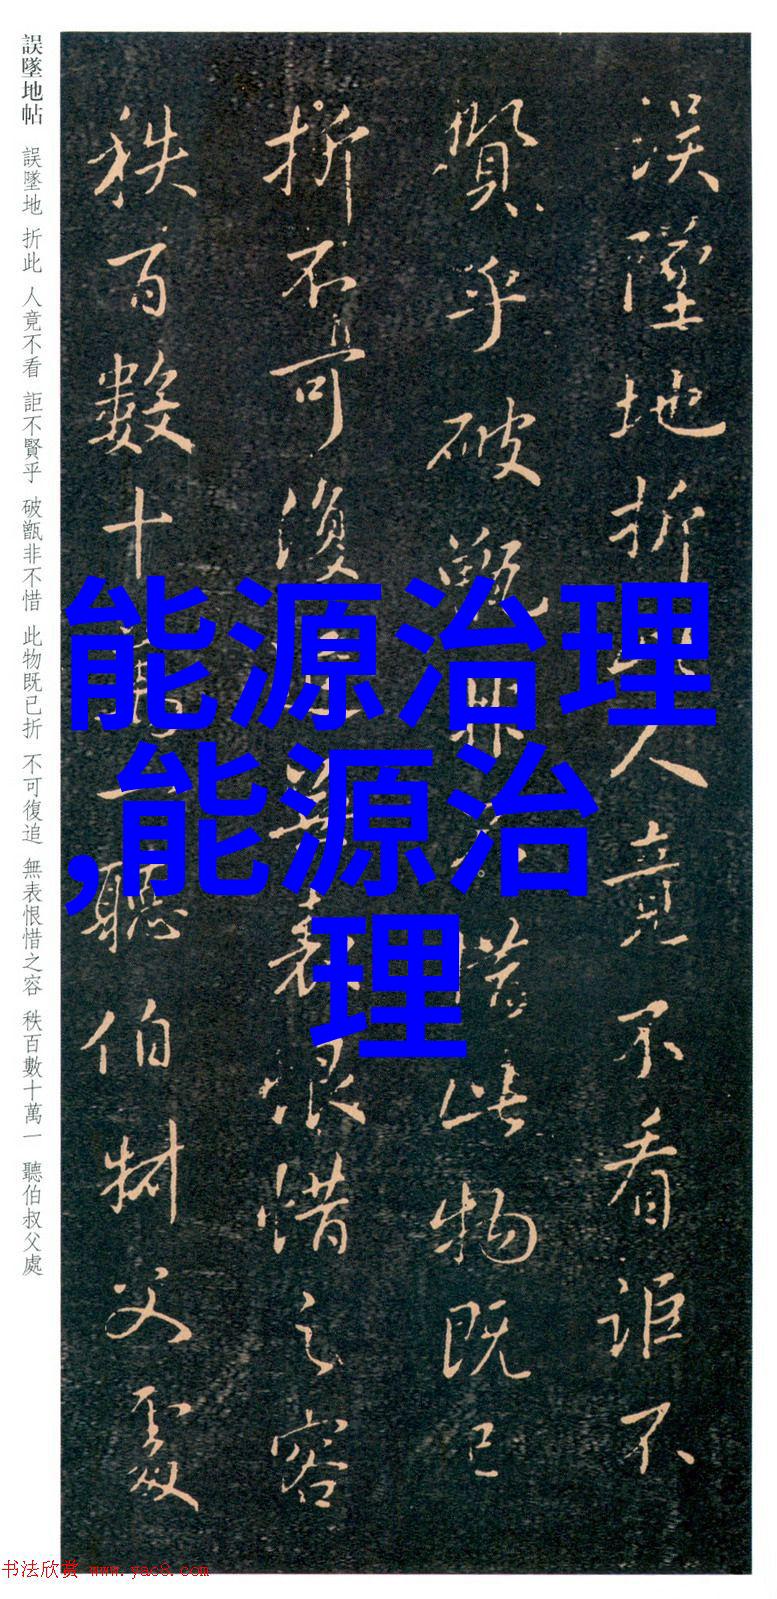 誤墜地折此人竟不看詎不
賢乎破甑非不惜此物既已
折不可復追無表恨惜之容
秩百數十萬一聽伯叔父處
誤墜地帖 誤墜地 折此 人竟不看 詎不賢乎 破甑非不惜 此物既已折 不可復追 無表恨惜之容 秩百數十萬一 聽伯叔父處
能源治理
,能源治
理
书法欣赏 www.yac8.com